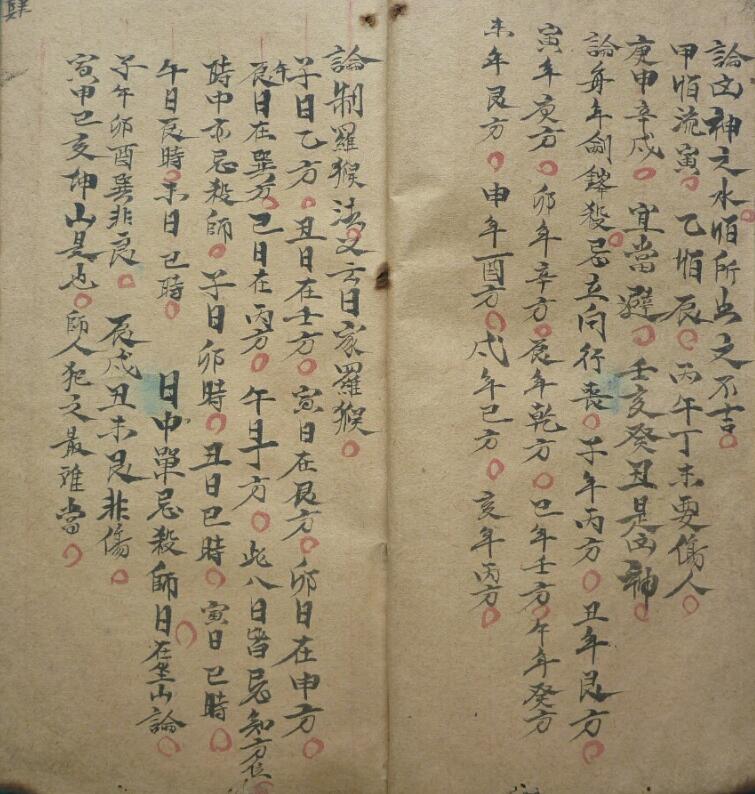 論凶神之水怕所出之不吉
甲怕流寅 乙怕辰 丙午丁未要傷人
庚申辛戌 宜當避 壬亥癸丑是凶神
論每年劍鋒殺忌立向行喪 子年丙方 丑年艮方
寅年庚方 卯年辛方 辰年乾方 巳年壬方 午年癸方
未年艮方 申年酉方 戌年巳方 亥年丙方
論制羅猴法又云日家羅猴
子日乙方 丑日在壬方 寅日在艮方 卯日在申方
辰日在巽方 巳日在丙方 午日丁方 此八日皆忌知方位
時中亦忌殺師 子日卯時 丑日巳時 寅日巳時
午日辰時 未日巳時 日中單忌殺師日在坐山論
子午卯酉巽非良 辰戌丑未艮非傷
寅甲巳亥伸山是也 師人犯之最雅當
肆